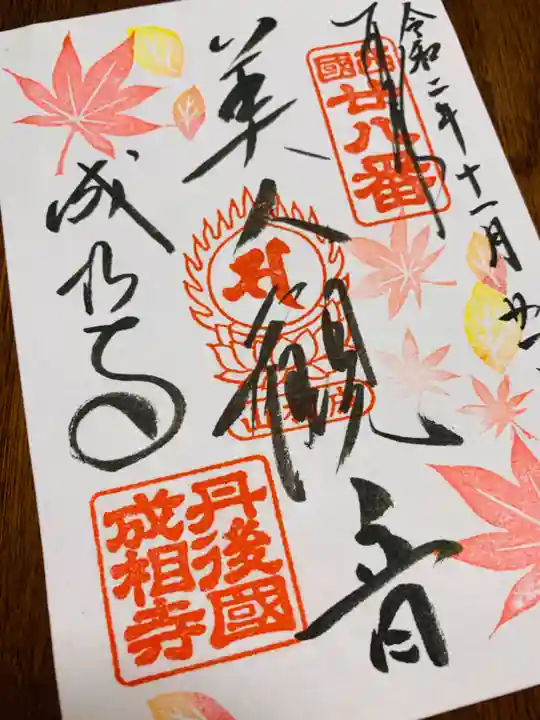 令和二年十一月廿
西國
廿八番
奉拝
美人観音
成相寺
丹後國
成相寺